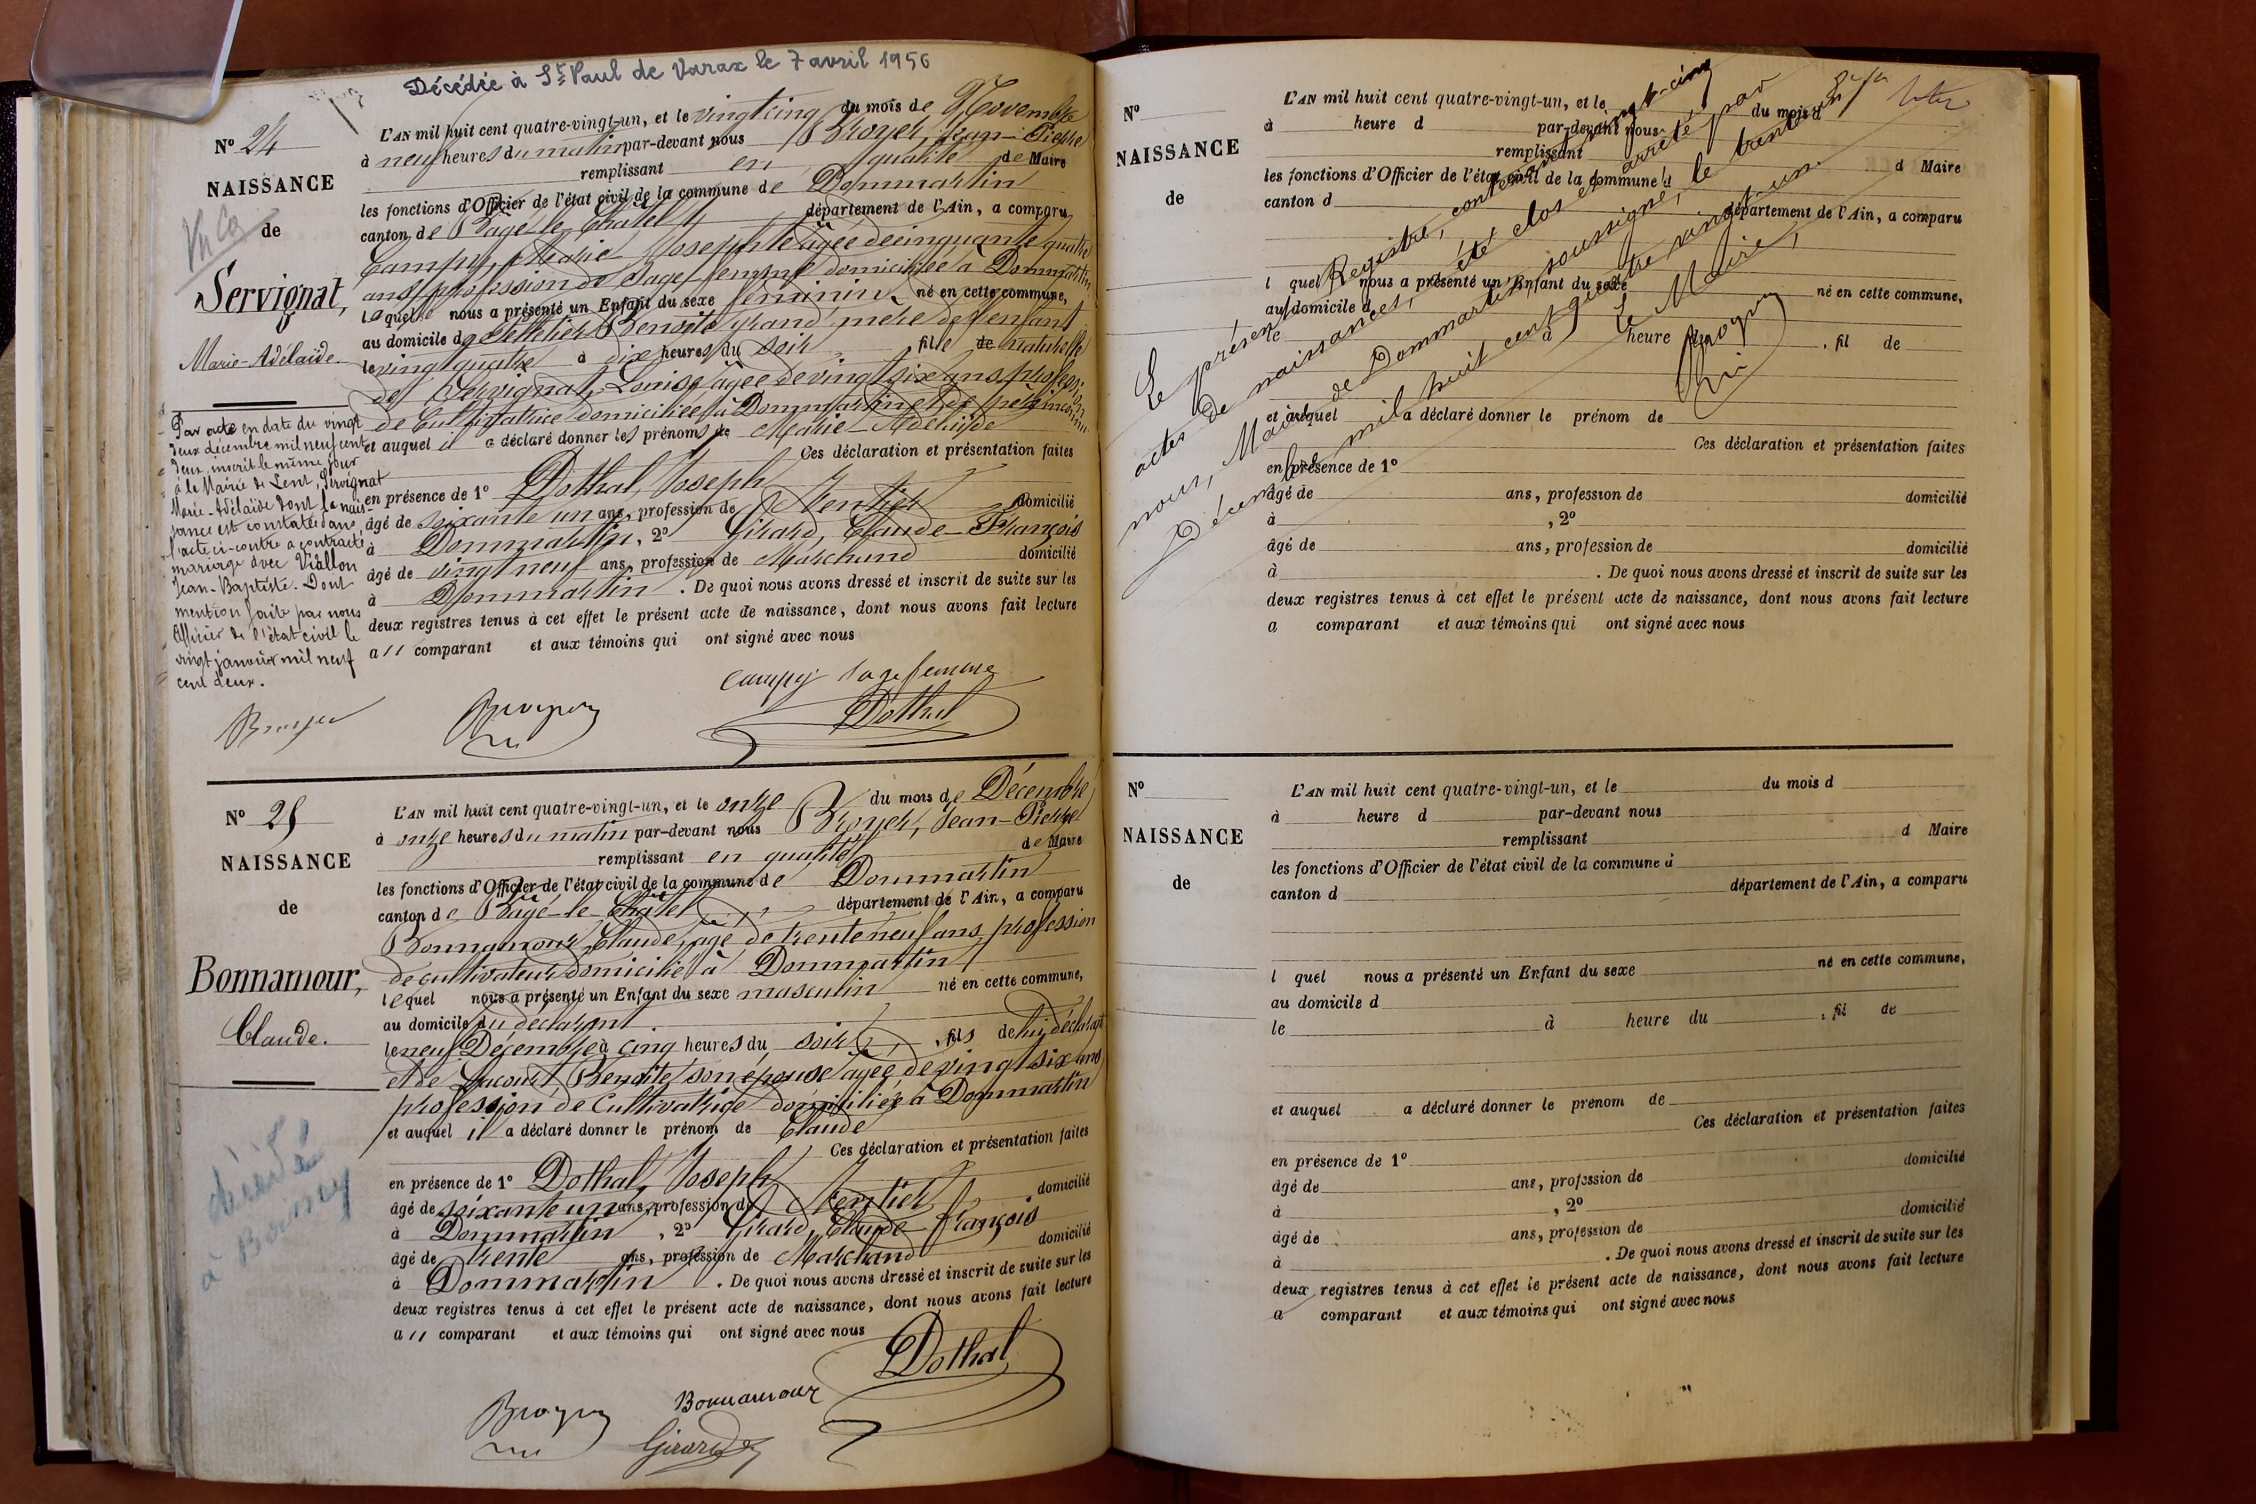 Décédée à St Paul de Varax le 7 avril 1956
No 24
NAISSANCE
de
Servignat,
Marie-Adélaïde.
L'AN mil huit cent quatre-vingt-un, et le vingt cinq du mois de Novembre
à neuf heures du matin par-devant nous Broyer, Jean-Pierre
remplissant en qualité de Maire
les fonctions d'Officier de l'état civil de la commune de Dommartin
canton de Bagé-le-Châtel département de l'Ain, a comparu
Campy, Marie Josephte âgée de cinquante quatre
ans, profession de sage femme domiciliée à Dommartin
laquelle nous a présenté un Enfant du sexe féminin né en cette commune,
au domicile de Pelletier Benoite grand'mère de l'enfant
le vingt quatre à dix heures du soir fille de naturelle
de Servignat, Louise, âgée de vingt six ans, profession
de Cultivatrice domiciliée à Dommartin et de père inconnu
et auquel il a déclaré donner les prénoms de Marie-Adélaïde
Ces déclaration et présentation faites
en présence de 1o Dothal, Joseph
âgé de soixante un ans, profession de Rentier domicilié
à Dommartin, 2o Girard, Claude-François
âgé de vingt neuf ans, profession de Marchand domicilié
à Dommartin. De quoi nous avons dressé et inscrit de suite sur les
deux registres tenus à cet effet le présent acte de naissance, dont nous avons fait lecture
a // comparant et aux témoins qui ont signé avec nous
Par acte en date du vingt
deux décembre mil neuf cent
deux, inscrit le même jour
à la Mairie de Lent, Servignat
Marie-Adélaïde dont la nais-
sance est constatée dans
l'acte ci-contre a contracté
mariage avec Viallon
Jean-Baptiste. Dont
mention faite par nous
Officier de l'état civil le
vingt janvier mil neuf
cent deux.
Campy sage femme
Broyer
Broyer
Dothal
No 25
NAISSANCE
de
Bonnamour,
Claude.
L'AN mil huit cent quatre-vingt-un, et le onze du mois de Décembre
à onze heures du matin par-devant nous Broyer, Jean-Pierre
remplissant en qualité de Maire
les fonctions d'Officier de l'état civil de la commune de Dommartin
canton de Bagé-le-Châtel département de l'Ain, a comparu
Bonnamour, Claude, âgé de trente neuf ans, profession
de cultivateur domicilié à Dommartin
lequel nous a présenté un Enfant du sexe masculin né en cette commune,
au domicile du déclarant
le neuf Décembre à cinq heures du soir, fils de lui déclarant
et de Lacour Benoite, son épouse âgée de vingt six ans
profession de Cultivatrice domiciliée à Dommartin
et auquel il a déclaré donner le prénom de Claude
Ces déclaration et présentation faites
en présence de 1o Dothal, Joseph
âgé de soixante un ans, profession de Rentier domicilié
à Dommartin, 2o Girard, Claude François
âgé de trente ans, profession de Marchand domicilié
à Dommartin. De quoi nous avons dressé et inscrit de suite sur les
deux registres tenus à cet effet le présent acte de naissance, dont nous avons fait lecture
a // comparant et aux témoins qui ont signé avec nous
décédé
Dothal
Bonnamour
Broyer
Girard
No
NAISSANCE
de
L'AN mil huit cent quatre-vingt-un, et le du mois d
à heure d par-devant nous
remplissant
d Maire
les fonctions d'Officier de l'état civil de la commune d
canton d département de l'Ain, a comparu
l quel nous a présenté un Enfant du sexe né en cette commune,
au domicile d
le à heure du , fil de
et auquel a déclaré donner le prénom de
Ces déclaration et présentation faites
en présence de 1o
âgé de ans, profession de domicilié
à , 2o
âgé de ans, profession de domicilié
à . De quoi nous avons dressé et inscrit de suite sur les
deux registres tenus à cet effet le présent acte de naissance, dont nous avons fait lecture
a comparant et aux témoins qui ont signé avec nous
Le présent Registre, contenant vingt-cinq
actes de naissances, a été clos et arrêté par
nous, Maire de Dommartin, soussigné, le trente un
Décembre mil huit cent quatre vingt un.
Le Maire,
Broyer
No
NAISSANCE
de
L'AN mil huit cent quatre-vingt-un, et le du mois d
à heure d par-devant nous
remplissant d Maire
les fonctions d'Officier de l'état civil de la commune d
canton d département de l'Ain, a comparu
l quel nous a présenté un Enfant du sexe né en cette commune,
au domicile d
le à heure du , fil de
et auquel a déclaré donner le prénom de
Ces déclaration et présentation faites
en présence de 1o
âgé de ans, profession de domicilié
à , 2o
âgé de ans, profession de domicilié
à . De quoi nous avons dressé et inscrit de suite sur les
deux registres tenus à cet effet le présent acte de naissance, dont nous avons fait lecture
a comparant et aux témoins qui ont signé avec nous